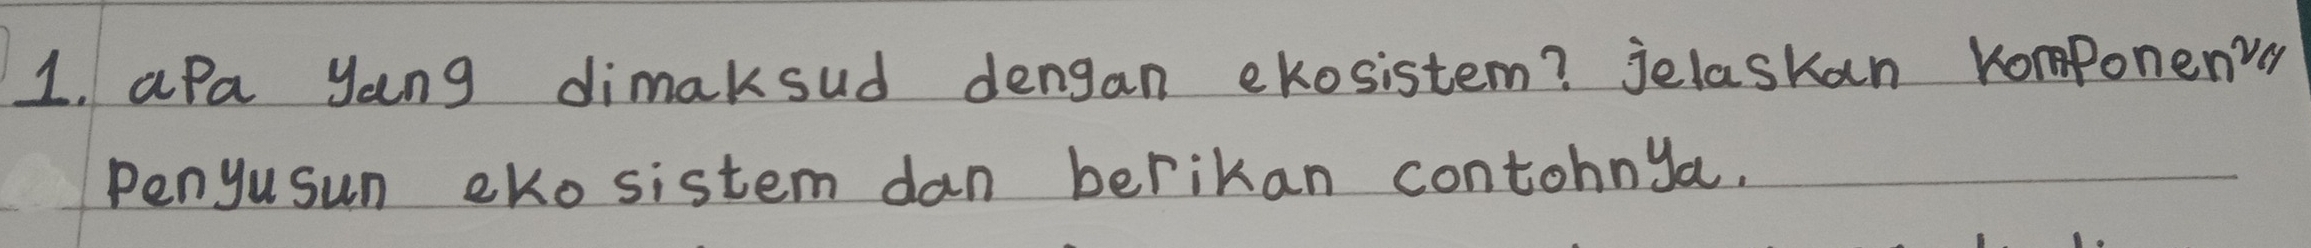 1. apa yang dimaksud dengan ekosistem? jelaskan komponen"
penyusun ekosistem dan berikan contohnya.